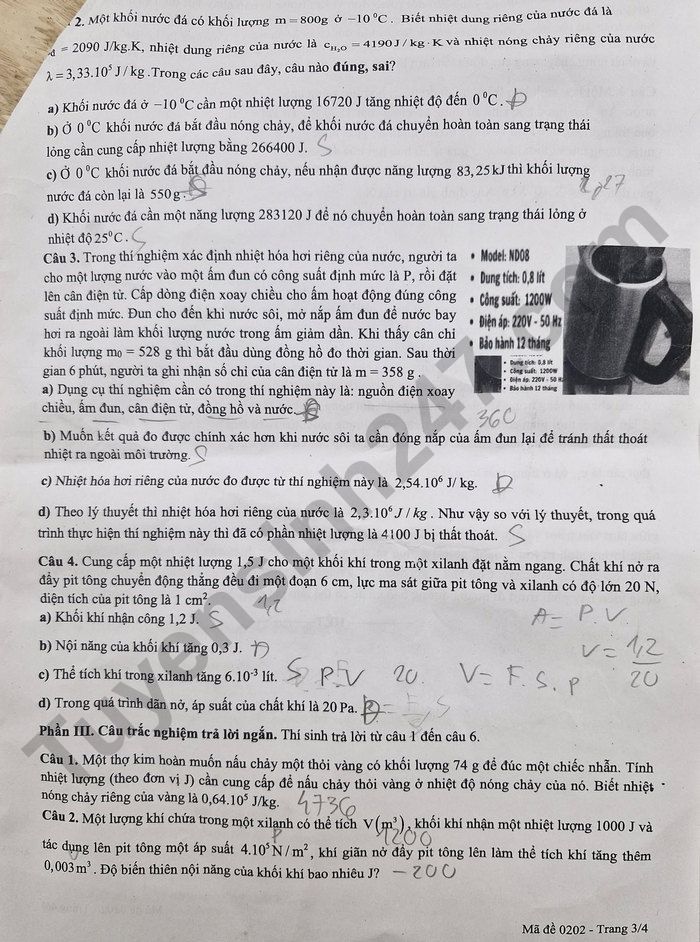 2. Một khối nước đá có khối lượng m = 800g ở −10 ⁰C. Biết nhiệt dung riêng của nước đá là
= 2090 J/kg.K, nhiệt dung riêng của nước là c_H₂O = 4190J / kg · K và nhiệt nóng chảy riêng của nước
λ = 3,33.10⁵ J / kg .Trong các câu sau đây, câu nào đúng, sai?
a) Khối nước đá ở −10 ⁰C cần một nhiệt lượng 16720 J tăng nhiệt độ đến 0 ⁰C. Đ
b) Ở 0 ⁰C khối nước đá bắt đầu nóng chảy, để khối nước đá chuyển hoàn toàn sang trạng thái
lỏng cần cung cấp nhiệt lượng bằng 266400 J. S
c) Ở 0 ⁰C khối nước đá bắt đầu nóng chảy, nếu nhận được năng lượng 83,25 kJ thì khối lượng
nước đá còn lại là 550g.
d) Khối nước đá cần một năng lượng 283120 J để nó chuyển hoàn toàn sang trạng thái lỏng ở
nhiệt độ 25⁰C. S
Câu 3. Trong thí nghiệm xác định nhiệt hóa hơi riêng của nước, người ta
cho một lượng nước vào một ấm đun có công suất định mức là P, rồi đặt
lên cân điện tử. Cấp dòng điện xoay chiều cho ấm hoạt động đúng công
suất định mức. Đun cho đến khi nước sôi, mở nắp ấm đun để nước bay
hơi ra ngoài làm khối lượng nước trong ấm giảm dần. Khi thấy cân chỉ
khối lượng m₀ = 528 g thì bắt đầu dùng đồng hồ đo thời gian. Sau thời
gian 6 phút, người ta ghi nhận số chỉ của cân điện tử là m = 358 g.
• Model: ND08
• Dung tích: 0,8 lít
• Công suất: 1200W
• Điện áp: 220V - 50 Hz
• Bảo hành 12 tháng
• Dung tích: 0,8 lít
• Công suất: 1200W
• Điện áp: 220V - 50 H
• Bảo hành 12 tháng
a) Dụng cụ thí nghiệm cần có trong thí nghiệm này là: nguồn điện xoay
chiều, ấm đun, cân điện tử, đồng hồ và nước.
360
b) Muốn kết quả đo được chính xác hơn khi nước sôi ta cần đóng nắp của ấm đun lại để tránh thất thoát
nhiệt ra ngoài môi trường. S
c) Nhiệt hóa hơi riêng của nước đo được từ thí nghiệm này là 2,54.10⁶ J/ kg. Đ
d) Theo lý thuyết thì nhiệt hóa hơi riêng của nước là 2,3.10⁶ J / kg. Như vậy so với lý thuyết, trong quá
trình thực hiện thí nghiệm này thì đã có phần nhiệt lượng là 4100 J bị thất thoát. S
Câu 4. Cung cấp một nhiệt lượng 1,5 J cho một khối khí trong một xilanh đặt nằm ngang. Chất khí nở ra
đẩy pit tông chuyển động thẳng đều đi một đoạn 6 cm, lực ma sát giữa pit tông và xilanh có độ lớn 20 N,
diện tích của pit tông là 1 cm². 1,2
a) Khối khí nhận công 1,2 J. S A = P.V
b) Nội năng của khối khí tăng 0,3 J. Đ V = 1,2/20
c) Thể tích khí trong xilanh tăng 6.10⁻³ lít. S P.V 20. V = F.S.P
d) Trong quá trình dãn nở, áp suất của chất khí là 20 Pa.
Phần III. Câu trắc nghiệm trả lời ngắn. Thí sinh trả lời từ câu 1 đến câu 6.
Câu 1. Một thợ kim hoàn muốn nấu chảy một thỏi vàng có khối lượng 74 g để đúc một chiếc nhẫn. Tính
nhiệt lượng (theo đơn vị J) cần cung cấp để nấu chảy thỏi vàng ở nhiệt độ nóng chảy của nó. Biết nhiệt
nóng chảy riêng của vàng là 0,64.10⁵ J/kg. 4736
Câu 2. Một lượng khí chứa trong một xilanh có thể tích V(m³), khối khí nhận một nhiệt lượng 1000 J và
P 1200
tác dụng lên pit tông một áp suất 4.10⁵ N / m², khí giãn nở đẩy pit tông lên làm thể tích khí tăng thêm
0,003m³. Độ biến thiên nội năng của khối khí bao nhiêu J? −200
Mã đề 0202 - Trang 3/4
Tuyensinh247.com